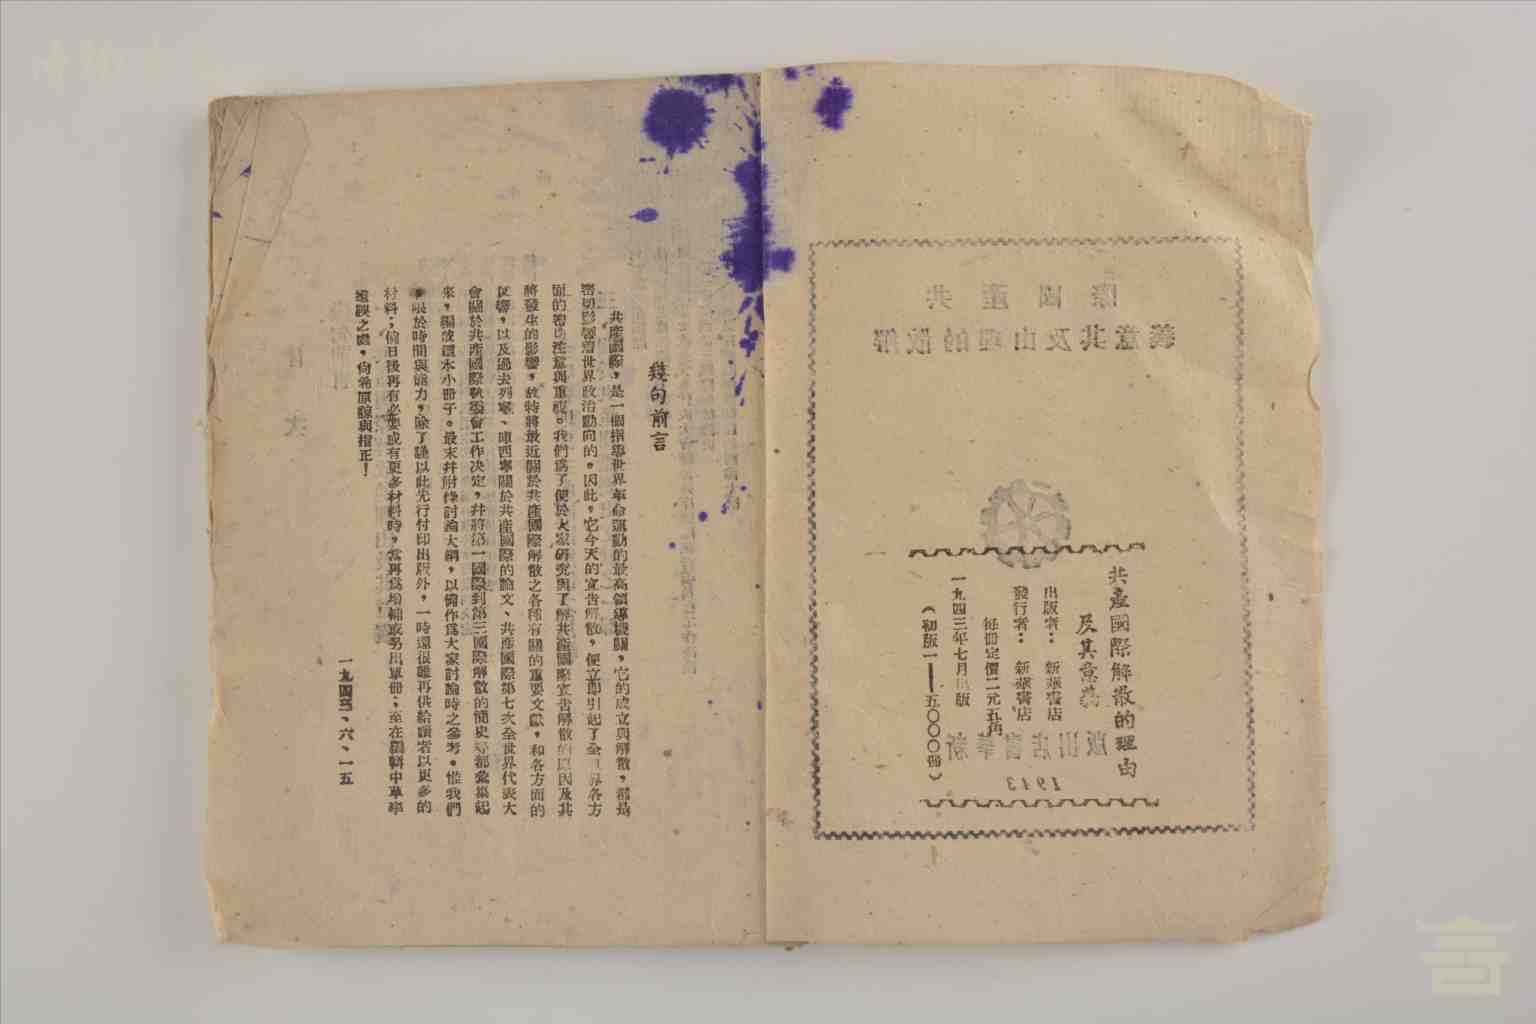 共產國際解散的理由
及其意義
出版者：新華書店
發行者：新華書店
每冊定價二元五角
一九四三年七月出版
（初版一——五〇〇〇冊）
共產國際
解散的理由及其意義
新華書店出版
1943
幾句前言
共產國際，是一個指導世界革命運動的最高領導機關，它的成立與解散，都是
密切影響着世界政治動向的。因此，它今天的宣告解散，便立即引起了全世界各方
面的密切注意與重視。我們爲了便於大家研究與了解共產國際宣告解散的原因及其
將發生的影響，故特將最近關於共產國際解散之各種有關的重要文獻，和各方面的
反響，以及過去列寧、斯大林關於共產國際的論文、共產國際第七次全世界代表大
會關於共產國際執委會工作決定，并將第一國際到第三國際解散的簡史等都彙集起
來，編成這本小冊子。最末并附錄討論大綱，以備作爲大家討論時之參考。惟我們
限於時間與能力，除了謹以此先行付印出版外，一時還很難再供給讀者以更多的
材料；倘日後再有必要或有更多材料時，當再爲增補或另出單冊；至在編輯中草率
遺誤之處，尚希原諒與指正！
一九四三、六、一五